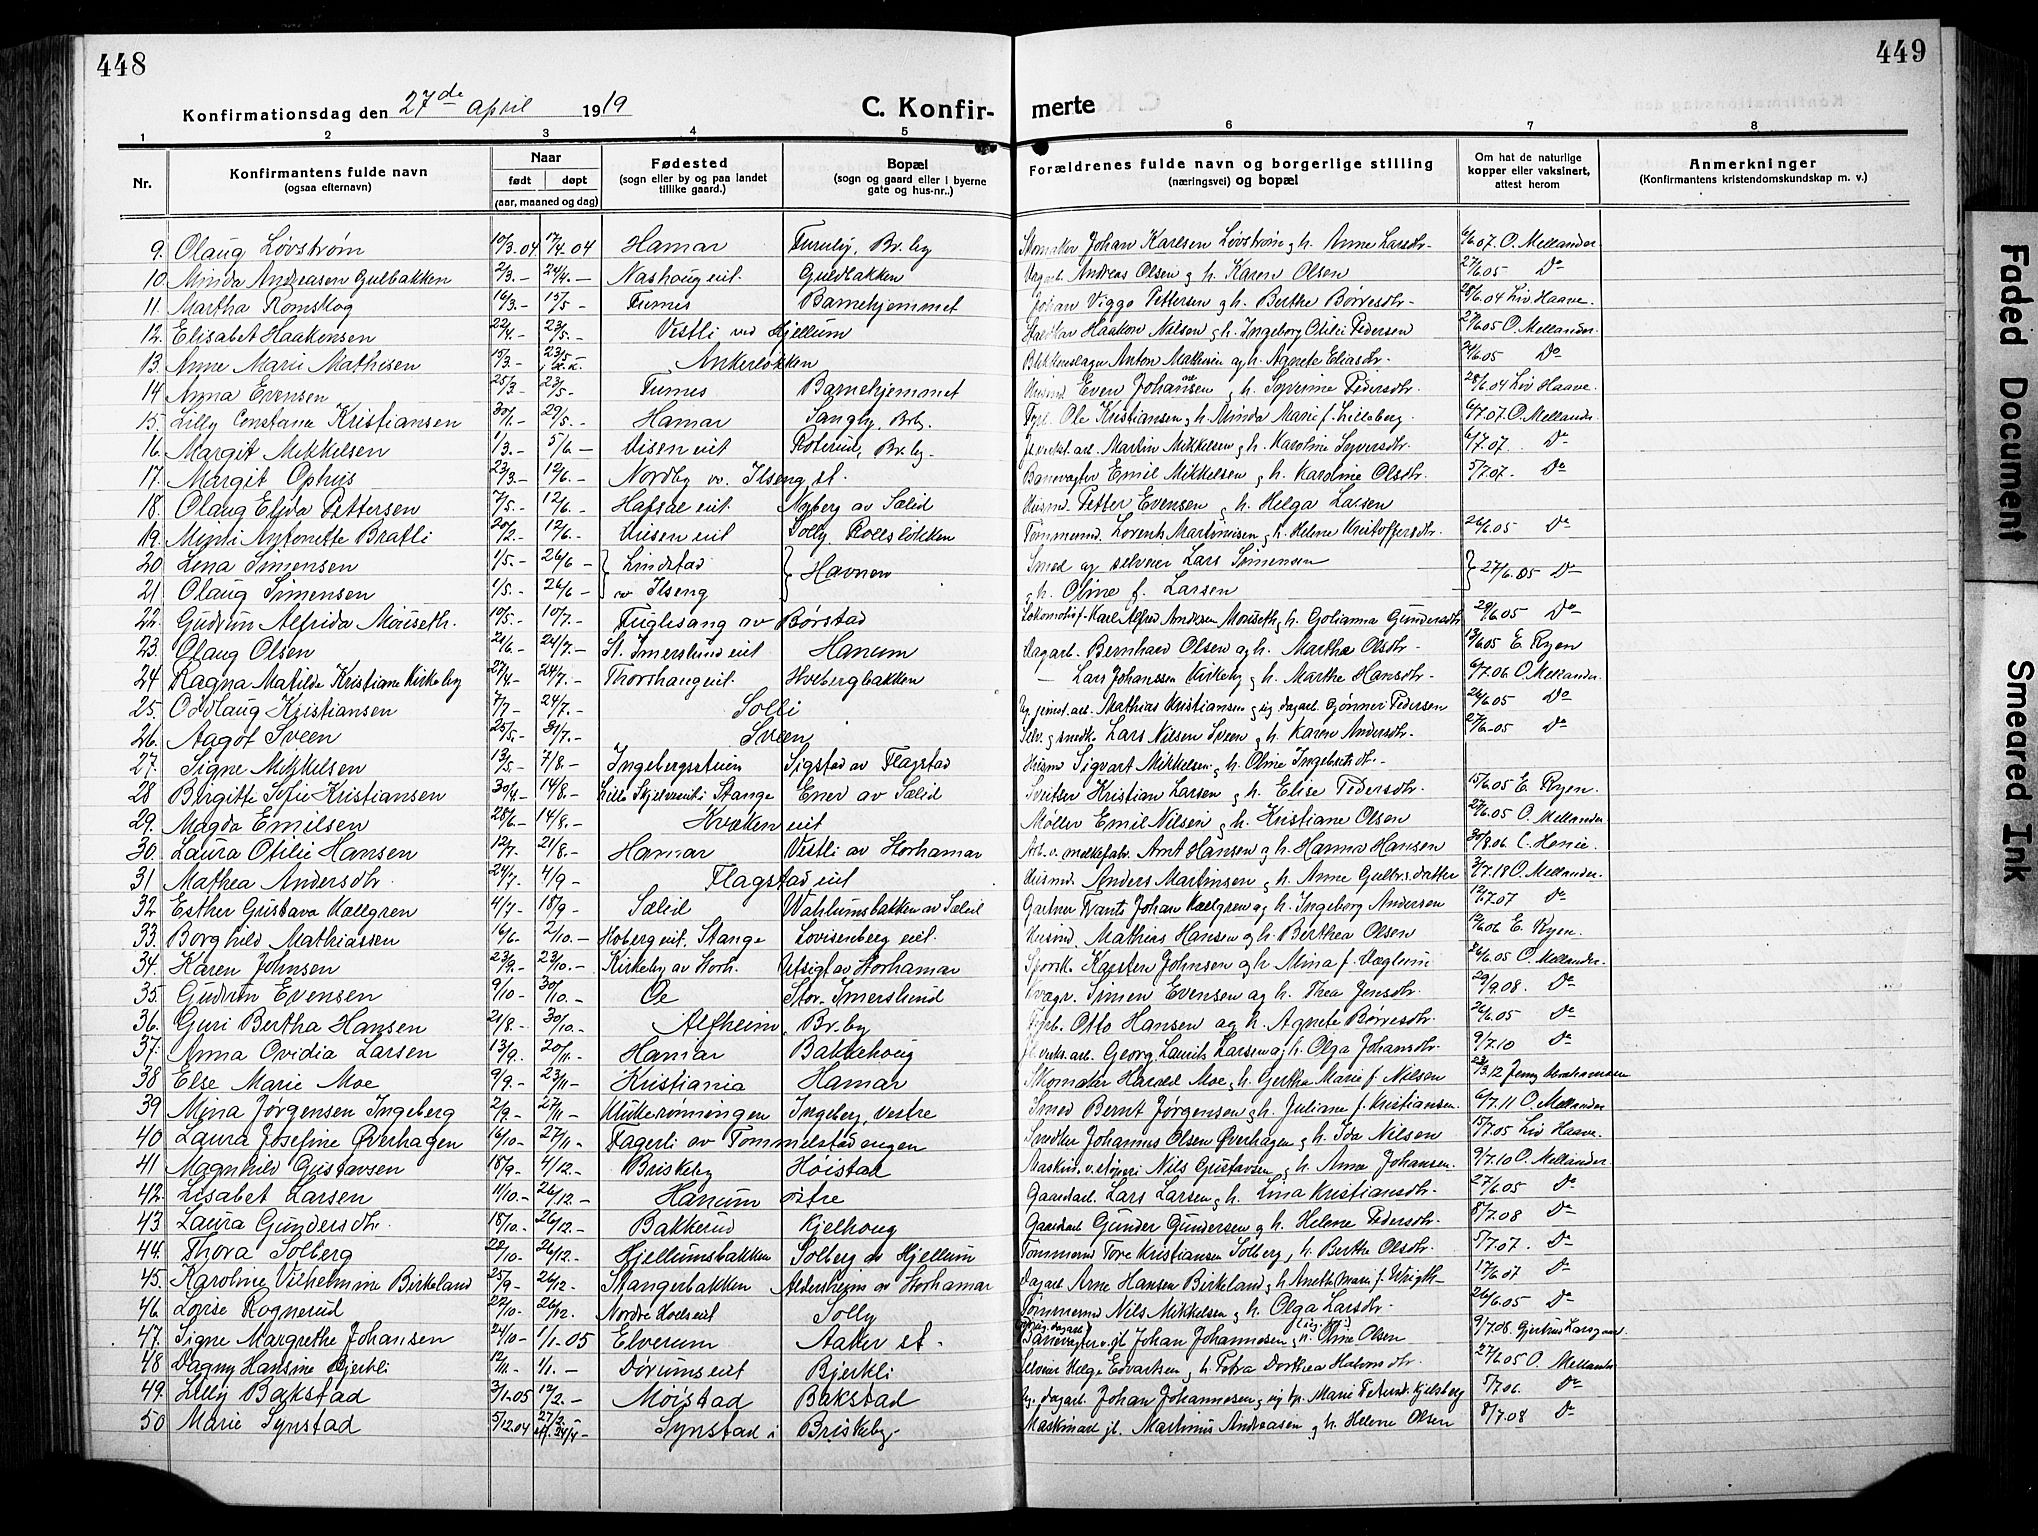 448
449
Konfirmationsdag den 27de april 1919
C. Konfir-
merte
1 2 3 4 5 6 7 8
Nr.
Konfirmantens fulde navn (ogsaa efternavn)
Naar
født døpt
(aar, maaned og dag)
Fødested (sogn eller by og paa landet tillike gaard.)
Bopæl (sogn og gaard eller i byerne gate og hus-nr.)
Forældrenes fulde navn og borgerlige stilling (næringsvei) og bopæl
Om hat de naturlige kopper eller vaksinert, attest herom
Anmerkninger (Konfirmantens kristendomskundskap m. v.)
9. Olaug Løvstrøm 10/3.04 17/4.04 Hamar Furuly, Br.by Skomaker Johan Karlsen Løvstrøm og h. Anne Larsdtr. 6/6.07 O. Mellander
10. Minda Andreasen Gulbakken 2/3.- 24/4.- Nashoug eit. Guldbakken Dagarb. Andreas Olsen og h. Karen Olsen 27/6.05 Do
11. Martha Romskog 16/3.- 15/5- Furnes Barnehjemmet Johan Viggo Pettersen og h. Berthe Børresdtr. 28/6.04 Liv Haave.
12. Elisabet Haakensen 22/4.- 23/5.- Vestli ved Hjellum Haakon Nilsen og h. Ingeborg Otilie Pedersen 27/6.05 O. Mellander.
13. Anne Marie Mathisen 15/3.- 23/5 Ankerløkken Blikkenslager Anton Mathisen og h. Agnete Eliasdtr. 24/6.05 Do
14. Anna Evensen 25/3.- 23/5- Furnes Barnehjemmet Husmd. Even Johansen og h. Syverine Pedersdtr. 28/6.04 Liv Haave.
15. Lilly Constance Kristiansen 30/1.- 29/5.- Hamar Sangly, Brby. Ole Kristiansen og h. Minda Marie f. Lilleberg 6/7.07. O. Mellander
16. Margit Mikkelsen 1/3.- 5/6- Disen eit Roterud, Br.by. Martin Mikkelsen og h. Karoline Syversdtr. 6/7.07. Do
17. Margit Ophus 23/3.- 12/6.- Nordby v. Ilseng st. Banevagter Emil Mikkelsen og h. Karoline Olsdtr. 5/7.07. Do
18. Olaug Elida Pettersen 7/5.- 12/6.- Hafsal eit. Nyberg av Sælid Husmd. Petter Evensen og h. Helga Larsen
19. Minti Antonette Bratli 20/2.- 12/6.- Disen eit Solly Rollsløkken Tømmermd. Lorents Martinisen og h. Helene Kristoffersdtr. 26/6.05 Do
20 Lina Simensen 1/5.- 26/6- } Lindstad } Havnen Smed og selveier Lars Simensen
21 Olaug Simensen 1/5.- 26/6- v Ilseng og h. Oline f. Larsen } 27/6.05 Do
22. Gudrun Alfrida Mouseth. 10/5.- 10/7.- Fuglesang av Børstad Lokomotivf. Karl Alfred Andersen Mouseth og h. Golianna Gundersdtr 29/6.05 Do
23. Olaug Olsen 21/6.- 24/7.- St. Imerslund eit Hanum Dagarb. Bernhard Olsen og h. Martha Olsdtr. 13/6.05 E. Ryen
24 Ragna Matilde Kristiane Kirkeby 27/4.- 24/7.- Thorshaug eit. Hvebergbakken — Lars Johanssen Kirkeby og h. Marthe Hansdtr. 6/7.06 O. Mellander
25. Oddlaug Kristiansen 7/7- 24/7.- Solli Mathias Kristiansen og dagarb. Gjønner Pedersen 26/6.05 Do
26. Aagot Sveen 25/5.- 31/7.- Sveen Selv. og snedk. Lars Nilsen Sveen og h. Karen Andersdtr. 27/6.05 Do
27. Signe Mikkelsen 13/5.- 7/8.- Ingebergsstuen Sigstad av Flagstad Husmd Sigvart Mikkelsen og h. Oline Ingebretsdtr.
28 Birgitte Sofie Kristiansen 30/4.- 14/8.- Lille Skjelve eit i Stange Ener av Sælid Sveitser Kristian Larsen og h. Elise Pedersdtr. 15/6.05 E. Ryen.
29. Magda Emilsen 28/6.- 14/8.- Kvæken eit Møller Emil Nilsen og h. Kristiane Olsen 27/6.05 O. Mellander
30. Laura Otilie Hansen 12/7. 21/8.- Hamar Vestli av Storhamar Arb. v. melkefabr. Arnt Hansen og h. Hanna Hansen 30/8.06 C. Honie.
31 Mathea Andersdtr. 24/7- 4/9- Flagstad eit Husmd. Anders Martinsen og h. Anne Gulbr.sdatter 3/7.18 O. Mellander.
32 Esther Gustava Kællgren 4/7- 18/9- Sælid Wahlumsbakken av Sælid Gartner Svante Johan Kællgren og h. Ingeborg Andersen 12/7.07 Do
33. Borghild Mathiassen 16/6- 2/10.- Hoberg eit. Stange Lovisenberg eit. Husmd. Mathias Hansen og h. Berthea Olsen 12/6.06 E. Ryen.
34. Karen Johnsen 23/9.- 23/10.- Kirkeby av Storh. Utsigt av Storhamar Karsten Johnsen og h. Mina f. Vaglum 26/6.05 O. Mellander.
35. Gudrun Evensen 9/10- 30/10.- Oe Stor-Imerslund Simen Evensen og h. Thea Jensdtr. 29/9.08. Do
36. Guri Bertha Hansen 21/8.- 30/10.- Alfheim, Br.by Otto Hansen og h. Agnete Børresdtr. 26/6.05 Do
37. Anna Ovidia Larsen 13/9. 20/11.- Hamar Bakkehoug Georg Laurits Larsen og h. Olga Johansdtr. 9/7.10 Do
38 Else Marie Moe 9/9.- 23/11- Kristiania Hamar Skomaker Harald Moe og h. Gertha Marie f. Nilsen 23/3.12 Jenny Abrahamsen
39 Mina Jørgensen Ingeberg 2/9.- 27/11- Klukerønningen Ingeberg, vestre Smed Bernt Jørgensen og h. Juliane f. Kristiansen. 6/7.11 O. Mellander
40 Laura Josefine Øverhagen 16/10- 27/11- Fagerli av Tommelstadengen Snedker Johannes Olsen Øverhagen og h. Ida Nilsen 15/7.05 Liv Haave.
41 Magnhild Gustavsen 18/9- 4/12.- Briskeby Høistad Maskinf. v. støperi Nils Gustavsen og h. Anna Johansen. 9/7.10 O. Mellander.
42. Lisabet Larsen 11/10.- 26/12.- Hanum østre Gaardarb. Lars Larsen og h. Lina Kristiansdtr. 27/6.05 Do
43 Laura Gundersdtr. 18/10.- 26/12.- Bakkerud Kjelhoug Gaardarb Gunder Gundersen og h. Helene Pedersdtr. 8/7.08 Do
44. Thora Solberg 22/10- 26/12.- Hjellumsbakken Solberg av Hjellum Tømmermd Tore Kristiansen Solberg og h. Berthe Olsdtr. 5/7.07. Do
45. Karoline Vilhelmine Birkeland 25/9- 26/12- Stangerbakken Aldersheim av Storhamar Dagarb Arne Hansen Birkeland og h. Anette Marie f. Wrigth 17/6.07 Do
46. Lovise Rognerud 27/10- 26/12. Nordre Hoel eit Solly Tømmermd Nils Mikkelsen og h. Olga Larsdtr. 26/6.05 Do
47. Signe Margrethe Johansen 24/10- 1/1-05 Elverum Aaker st. Banevagter v. jb. Johan Johannesen og h. Oline Olsen 9/7.08. Gjertrud Larsgaard
48 Dagny Hansine Bjerkli 12/11.- 1/1.- Dørum eit Bjerkli Selveier Helge Edvartsen og h. Petra Dorthea Halvorsdtr. 27/6.05 O. Mellander
49. Lilly Bakstad 3/1.05 12/2.- Moistad Bakstad Ug. dagarb. Johan Johannesen og ug. tp. Marie Petersd. Kjelsberg 5/7.06. Do
50 Marie Synstad 5/12.04 27/2.- eft. 24/4- Synstad i Briskeby Maskinarb jb. Martinus Andreasen og h. Helene Olsen 8/7.08 Do
Faded Document
Smeared Ink